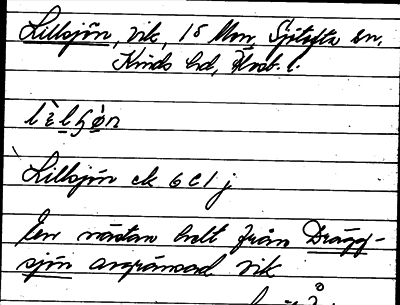 Lillsjön, vik, 15 Mon, Sjötofta sn,
Kinds hd, Älvsb. l.
Lillsjön ek 6 C 1 j
En nästan helt från Drägg-
sjön avgränsad vik